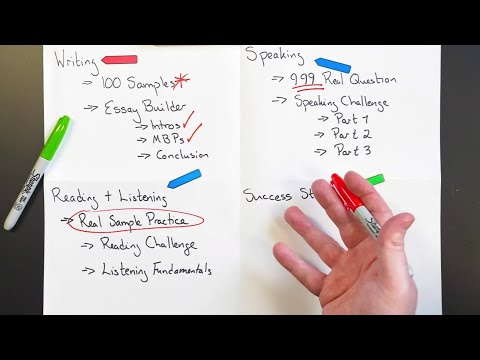 Writing
→ 100 Samples*
→ Essay Builder
→ Intros ✓
→ MBPs ✓
→ Conclusion
Speaking
→ 999 Real Question
→ Speaking Challenge
→ Part 1
→ Part 2
→ Part 3
Reading + Listening
→ Real Sample Practice
→ Reading Challenge
→ Listening Fundamentals
Success
Sharpie